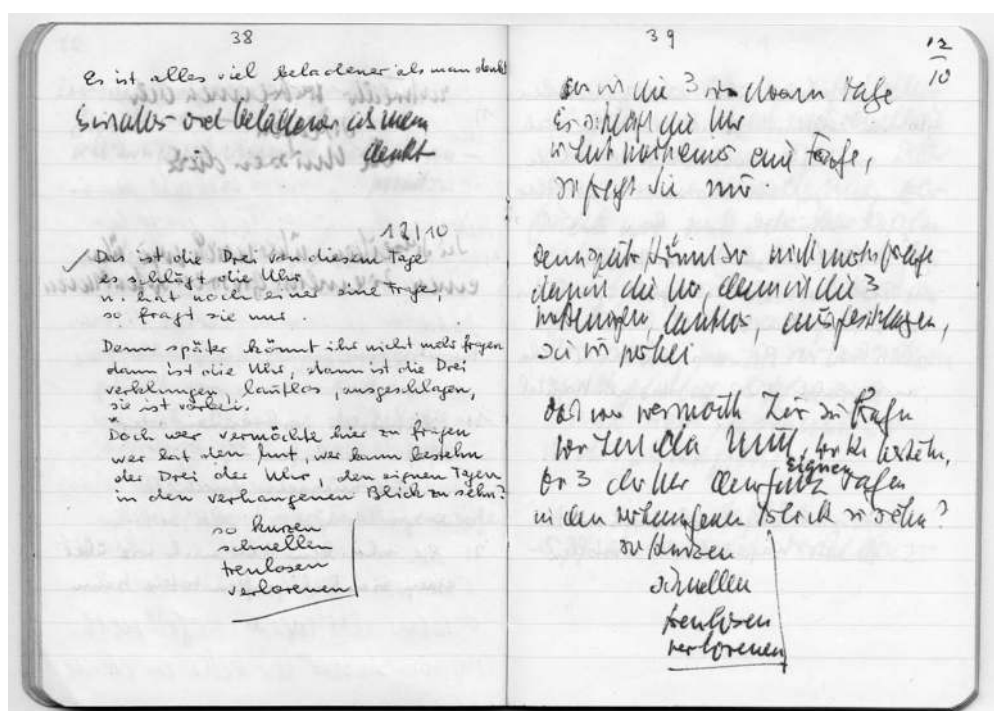 38
Es ist alles viel beladener als man denkt
Es ist alles viel beladener als man
denkt
12/10
Das ist die Drei von diesem Tage
es schlägt die Uhr
u. hat noch einer eine Frage,
so fragt sie nur.
Denn später könnt ihr nicht mehr fragen
dann ist die Uhr, dann ist die Drei
verklungen, lautlos, ausgeschlagen,
sie ist vorbei.
Doch wer vermöchte hier zu fragen
wer hat den Mut, wer kann bestehn
der Drei der Uhr den eignen Tagen
in den verhangenen Blick zu sehn?
so kurzen
schnellen
treulosen
verlorenen
39
12/10
die 3 von Tage
Es schlägt die Uhr
eine Frage,
so fragt sie nur
Denn später könnt ihr nicht mehr fragen
dann die Uhr, dann ist die 3
lautlos, ausgeschlagen,
sie ist vorbei
doch wer vermöcht hier zu fragen
wer hat den Mut, wer kann bestehn,
der 3 der Uhr den eignen Tagen
in den verhangenen Blick zu sehn?
so kurzen
schnellen
treulosen
verlorenen